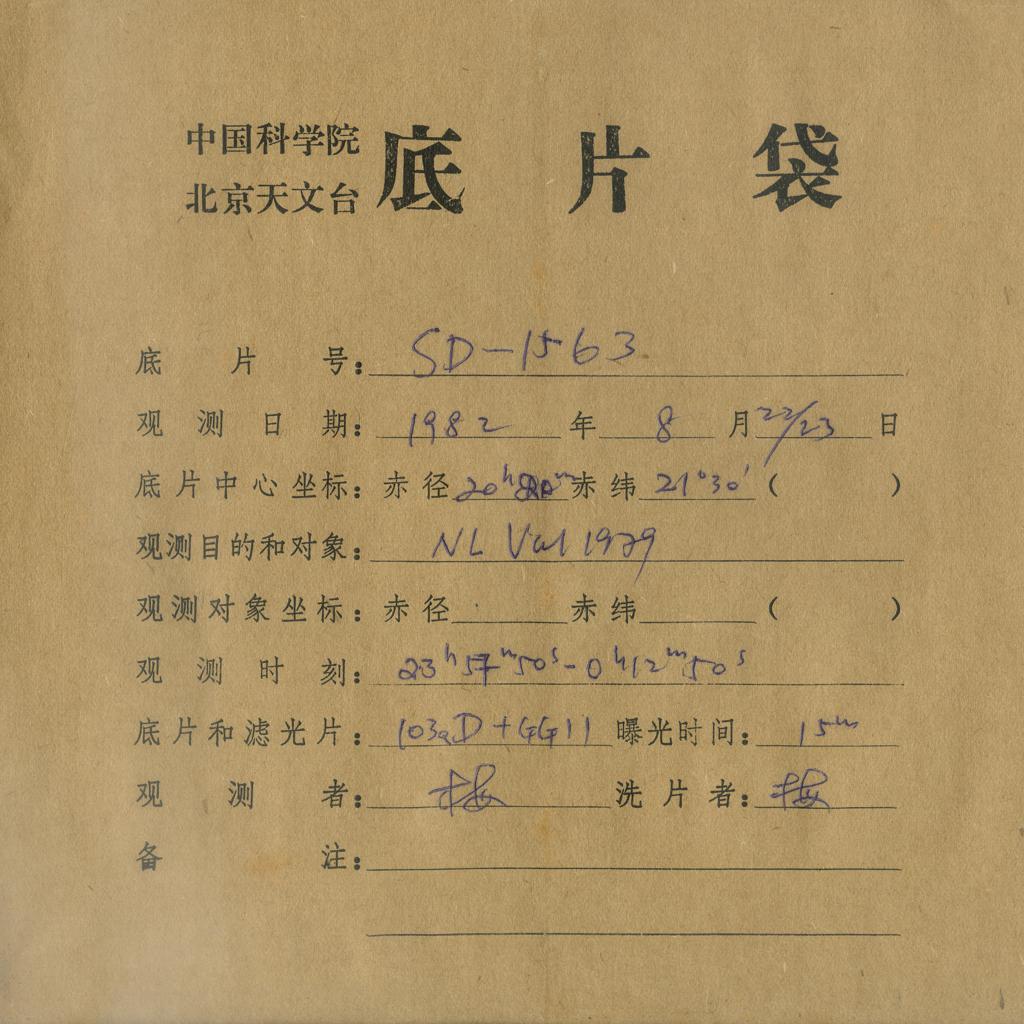 中国科学院
北京天文台 底片袋
底片号: SD-1563
观测日期: 1982 年 8 月 22/23 日
底片中心坐标: 赤径 20ʰ 赤纬 21°30′ ( )
观测目的和对象: NL Vul 1979
观测对象坐标: 赤径 赤纬 ( )
观测时刻: 23ʰ57ᵐ50ˢ-0ʰ12ᵐ50ˢ
底片和滤光片: 103aD+GG11 曝光时间: 15ᵐ
观测者: 梅 洗片者: 梅
备注: